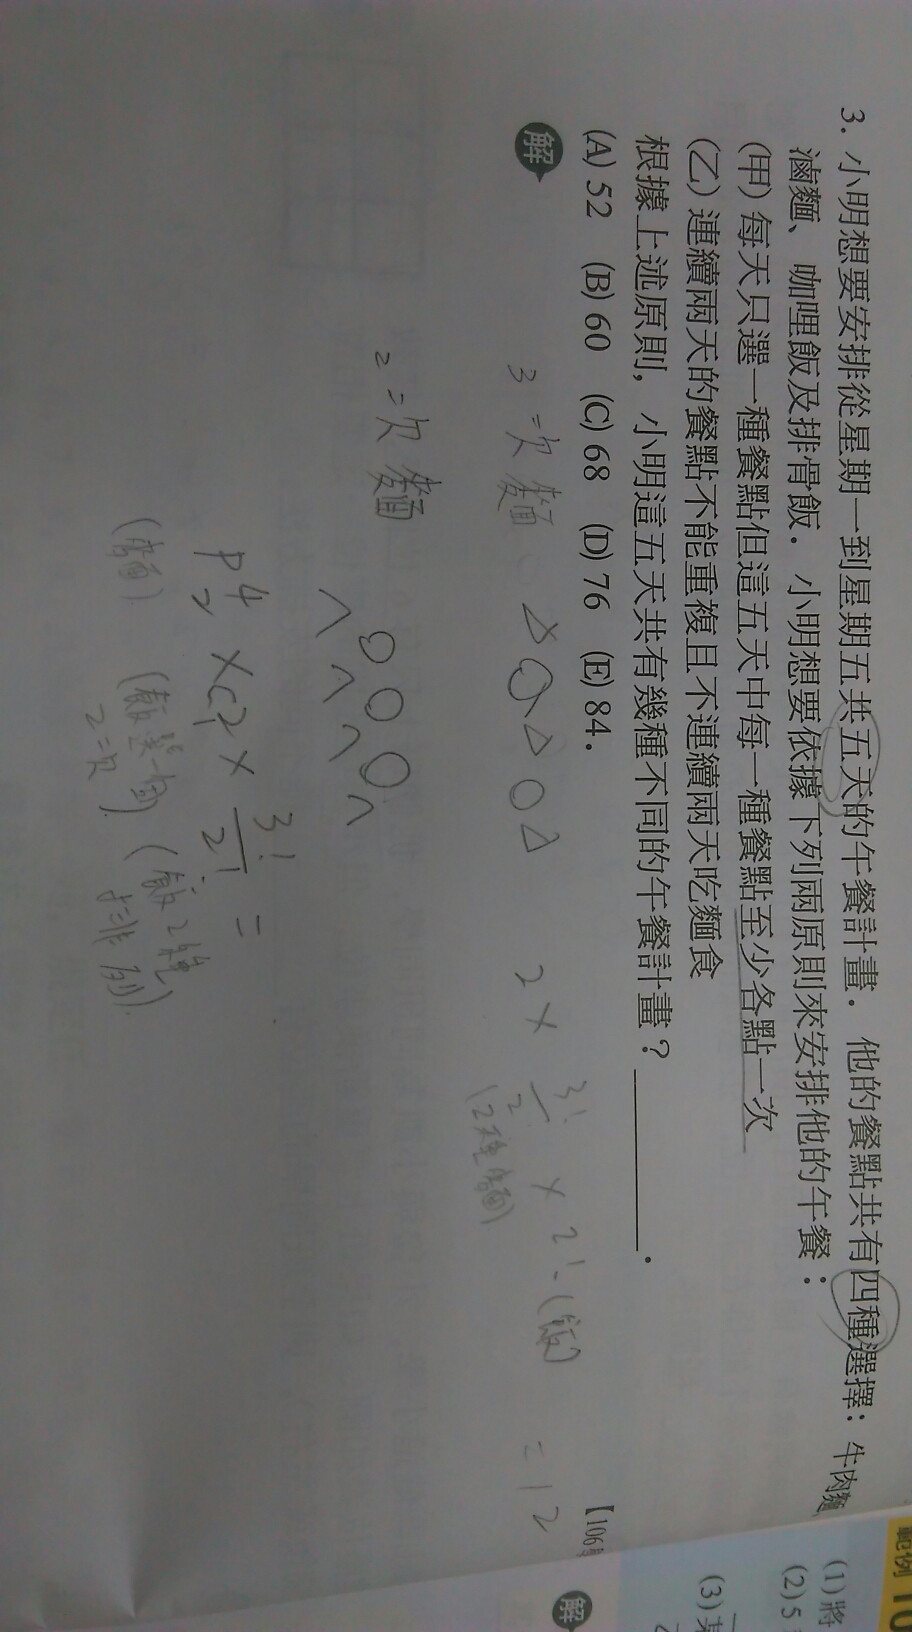 3. 小明想要安排從星期一到星期五共五天的午餐計畫. 他的餐點共有四種選擇: 牛肉麵、
滷麵、咖哩飯及排骨飯. 小明想要依據下列兩原則來安排他的午餐:
(甲) 每天只選一種餐點但這五天中每一種餐點至少各點一次
(乙) 連續兩天的餐點不能重複且不連續兩天吃麵食
根據上述原則, 小明這五天共有幾種不同的午餐計畫?
(A) 52 (B) 60 (C) 68 (D) 76 (E) 84.
【106
解
3=次麵 △○△○△ 2 × 3!/2 × 2! (飯) = 12
(2種麵)
2=次麵
○○○
^ ^ ^ ^
P⁴₂ × C²₁ × 3!/2! =
(麵) (飯選一個) (飯2種)
2=次 排列
範例 10
(1) 將
(2) 5
(3) 某
解